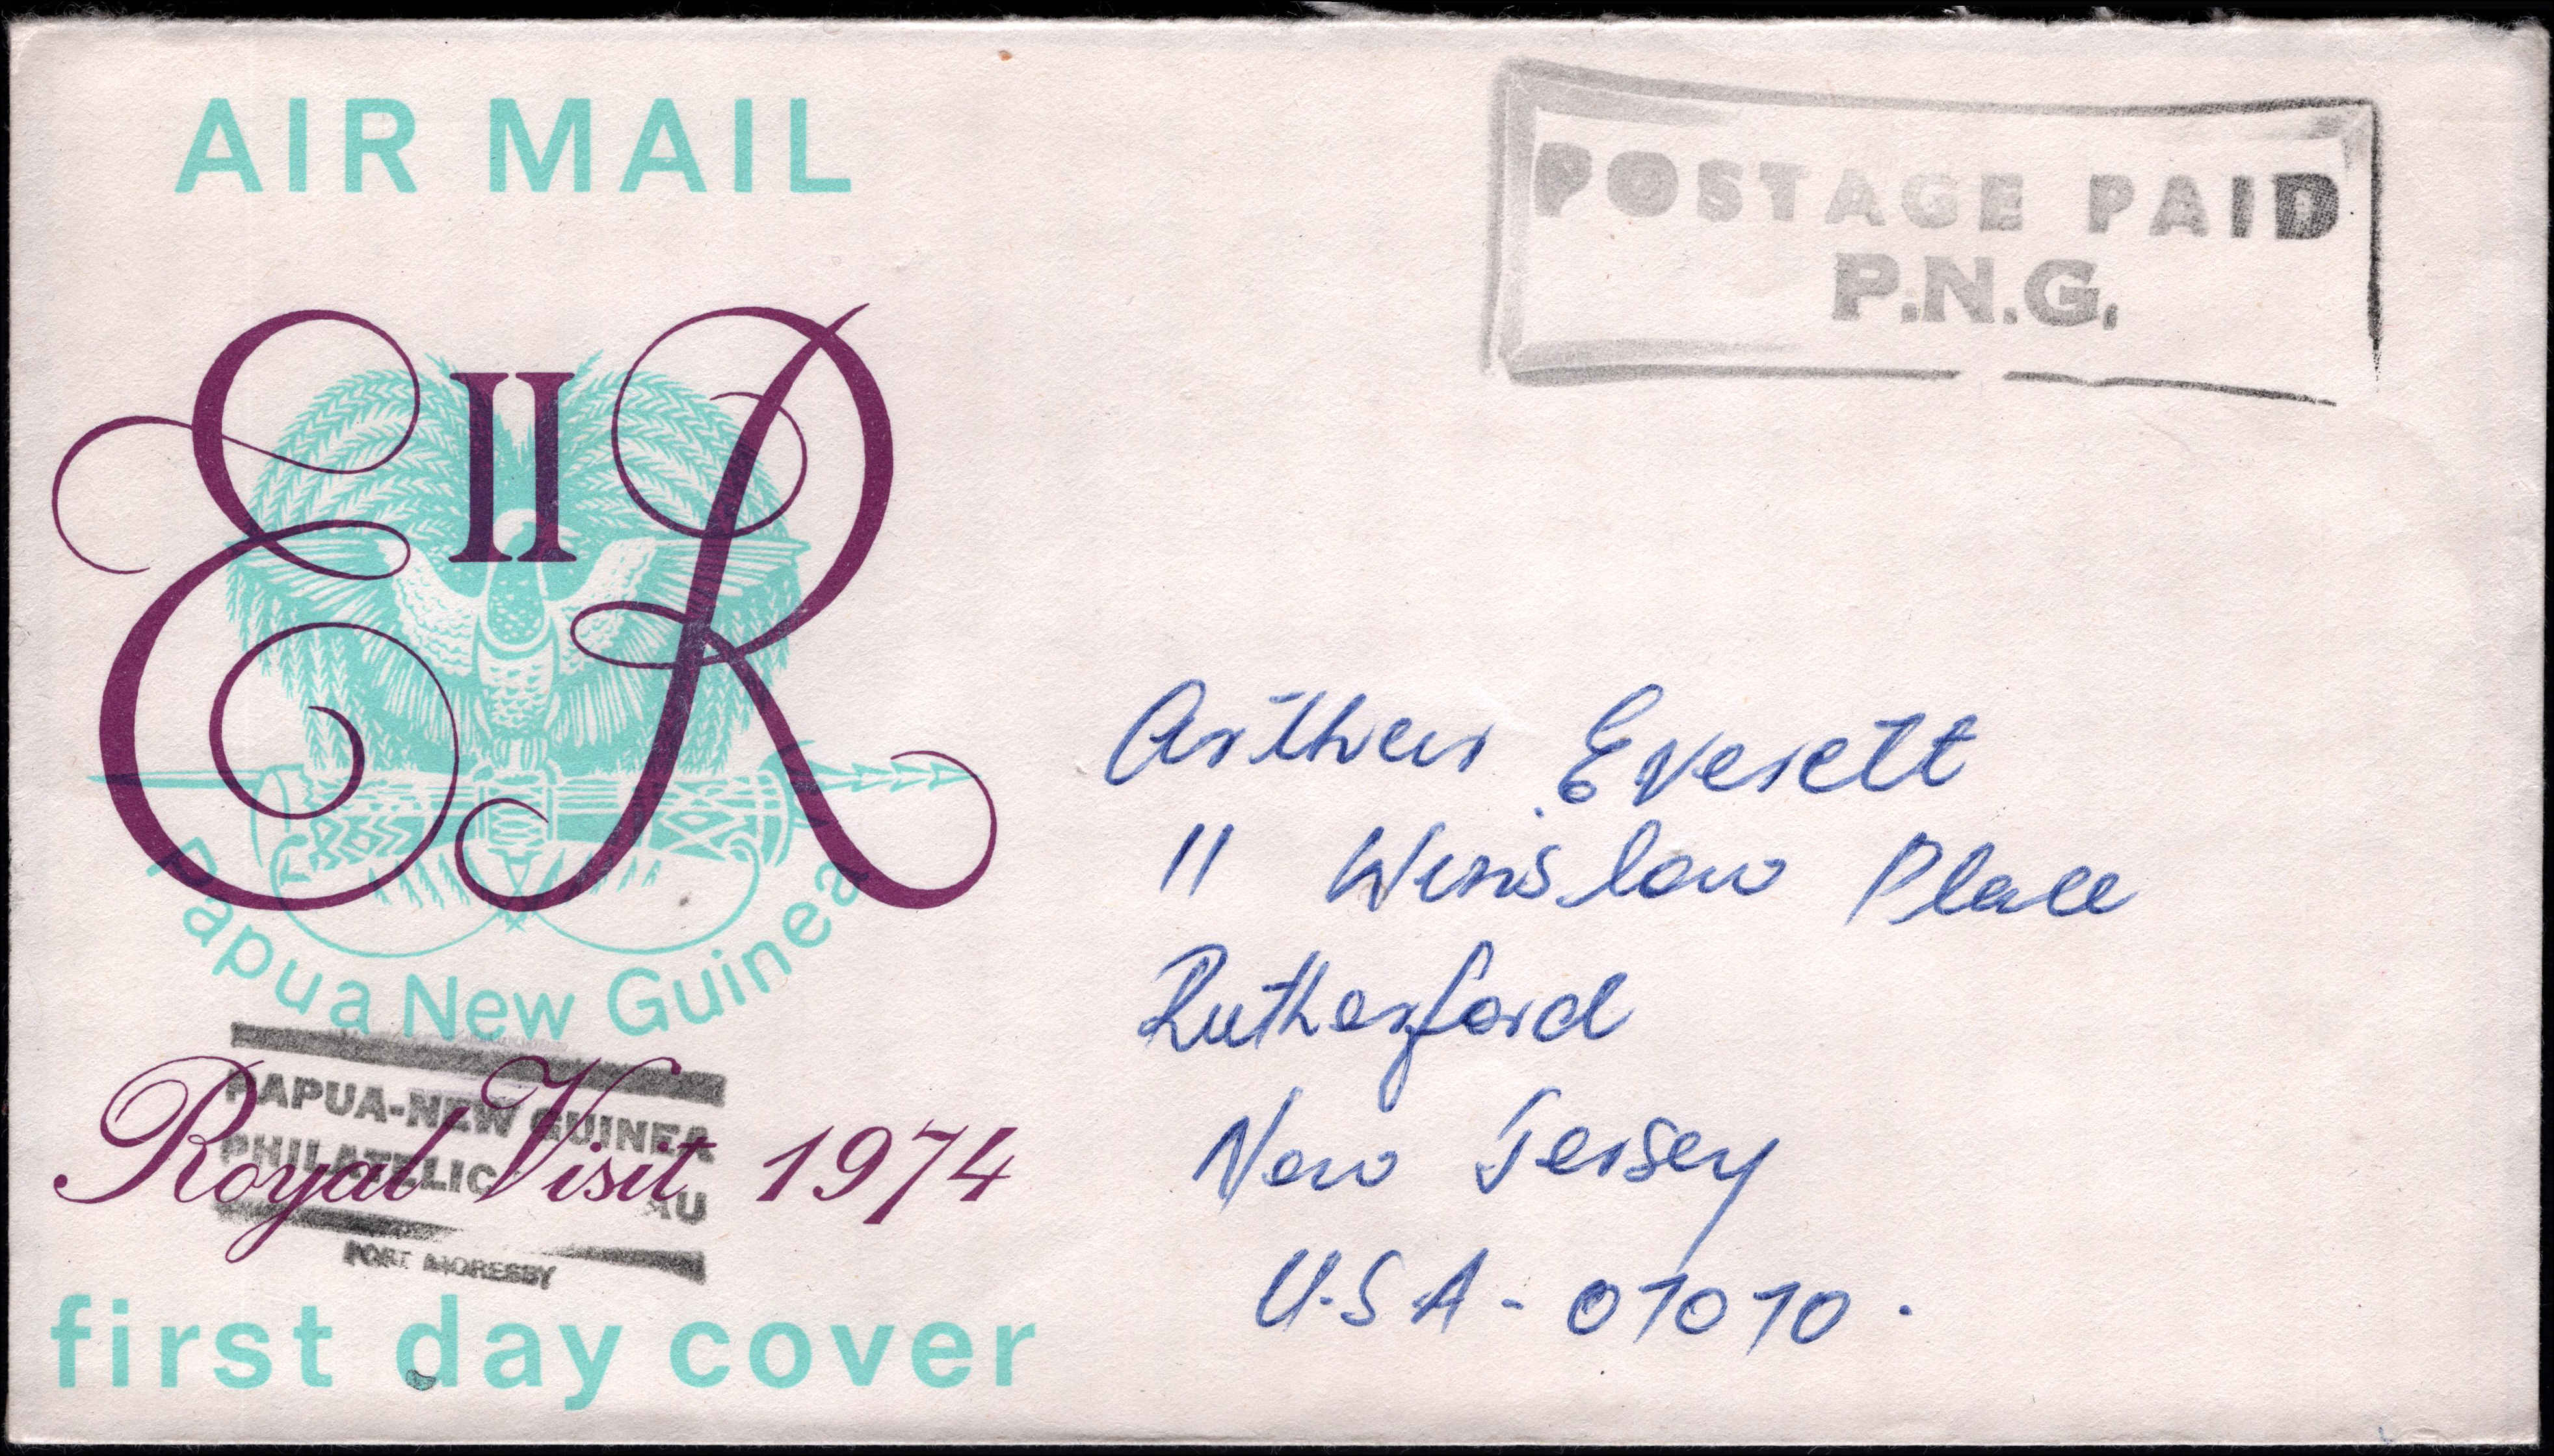 AIR MAIL
POSTAGE PAID
P.N.G.
EIIR
Papua New Guinea
PAPUA-NEW GUINEA
PHILATELIC
AU
PORT MORESBY
Royal Visit 1974
first day cover
Arthur Everett
11 Winslow Place
Rutherford
New Jersey
U.S A - 07070.